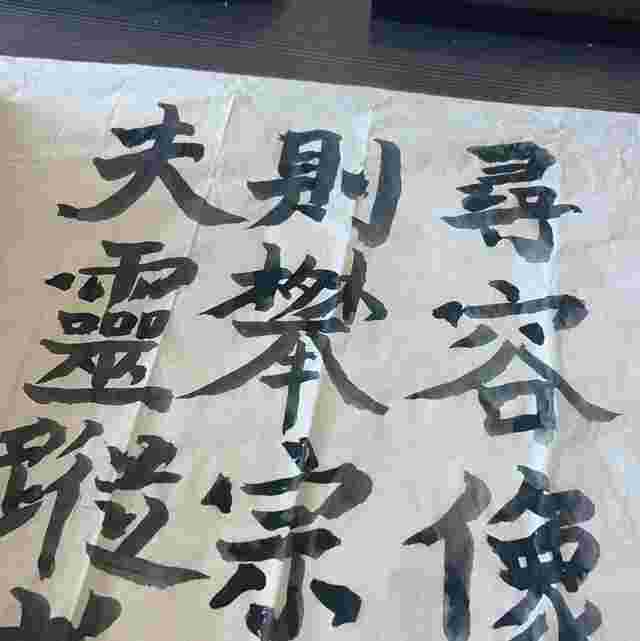 尋容像
則攀宗
夫靈蹤